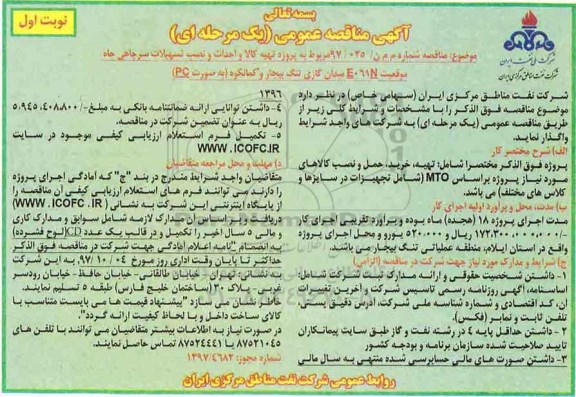 بسمه تعالی
نوبت اول
آگهی مناقصه عمومی (یک مرحله ای)
شرکت ملی نفت ایران
شرکت نفت مناطق مرکزی ایران
موضوع: مناقصه شماره م.م.ن/ ۰۲۵ /۹۷ مربوط به پروژه تهیه کالا و احداث و نصب تسهیلات سرچاهی چاه
موقعیت E-۰۶۱N میدان گازی تنگ بیجار و کمانکوه (به صورت PC)
شرکت نفت مناطق مرکزی ایران (سهامی خاص) در نظر دارد
موضوع مناقصه فوق الذکر را با مشخصات و شرایط کلی زیر از
طریق مناقصه عمومی (یک مرحله ای) به شرکت های واجد شرایط
واگذار نماید.
الف) شرح مختصر کار
پروژه فوق الذکر مختصرا شامل: تهیه، خرید، حمل و نصب کالاهای
مورد نیاز پروژه براساس MTO (شامل تجهیزات در سایزها و
کلاس های مختلف) می باشد.
ب) مدت، محل و برآورد اولیه اجرای کار
مدت اجرای پروژه ۱۸ (هجده) ماه بوده و برآورد تقریبی اجرای کار
۱۷۲،۳۰۰،۰۰۰،۰۰۰/- ریال و ۵۲۰،۰۰۰ یورو و محل اجرای پروژه
واقع در استان ایلام، منطقه عملیاتی تنگ بیجار می باشد.
ج) شرایط و مدارک مورد نیاز جهت شرکت در مناقصه (الزامی)
۱- داشتن شخصیت حقوقی و ارائه مدارک ثبتی شرکت شامل:
اساسنامه، آگهی روزنامه رسمی تاسیس شرکت و آخرین تغییرات
آن، کد اقتصادی و شماره شناسه ملی شرکت، آدرس دقیق پستی،
تلفن ثابت و نمابر (فکس).
۲- داشتن حداقل پایه ۴ در رشته نفت و گاز طبق سایت پیمانکاران
تایید صلاحیت شده سازمان برنامه و بودجه کشور
۳- داشتن صورت های مالی حسابرسی شده منتهی به سال مالی
۱۳۹۶
۴- داشتن توانایی ارائه ضمانتنامه بانکی به مبلغ /-۵،۹۴۵،۴۰۸،۸۰۰
ریال به عنوان تضمین شرکت در مناقصه.
۵- تکمیل فرم استعلام ارزیابی کیفی موجود در سایت
WWW.ICOFC.IR
د) مهلت و محل مراجعه متقاضیان
متقاضیان واجد شرایط مندرج در بند "ج" که آمادگی اجرای پروژه
را دارند می توانند فرم های استعلام ارزیابی کیفی آن مناقصه را
از پایگاه اینترنتی این شرکت به نشانی ( WWW. ICOFC .IR)
دریافت و به همراه مدارک لازمه شامل سوابق و مدارک کاری
و مالی ۵ سال اخیر را تکمیل و در قالب یک عدد CD(لوح فشرده)
به انضمام "نامه اعلام آمادگی جهت شرکت در مناقصه فوق الذکر
حداکثر تا پایان وقت اداری روز مورخ ۰۴ /۱۰ /۹۷ به این شرکت
به نشانی تهران- خیابان طالقانی- خیابان حافظ- خیابان رودسر
غربی- پلاک ۳۰ (ساختمان خلیج فارس) طبقه ۵ تسلیم نمایند.
خاطر نشان می سازد "پیشنهاد قیمت ها می بایست متناسب با
کالای ساخت داخل و با لحاظ کیفیت ارائه گردد".
در صورت نیاز به اطلاعات بیشتر متقاضیان می توانند با تلفن های
۸۷۵۲۱۰۴۵ یا ۸۷۵۲۴۴۴۱ تماس حاصل نمایند.
شماره مجوز: ۱۳۹۷/۴۶۸۲
روابط عمومی شرکت نفت مناطق مرکزی ایران